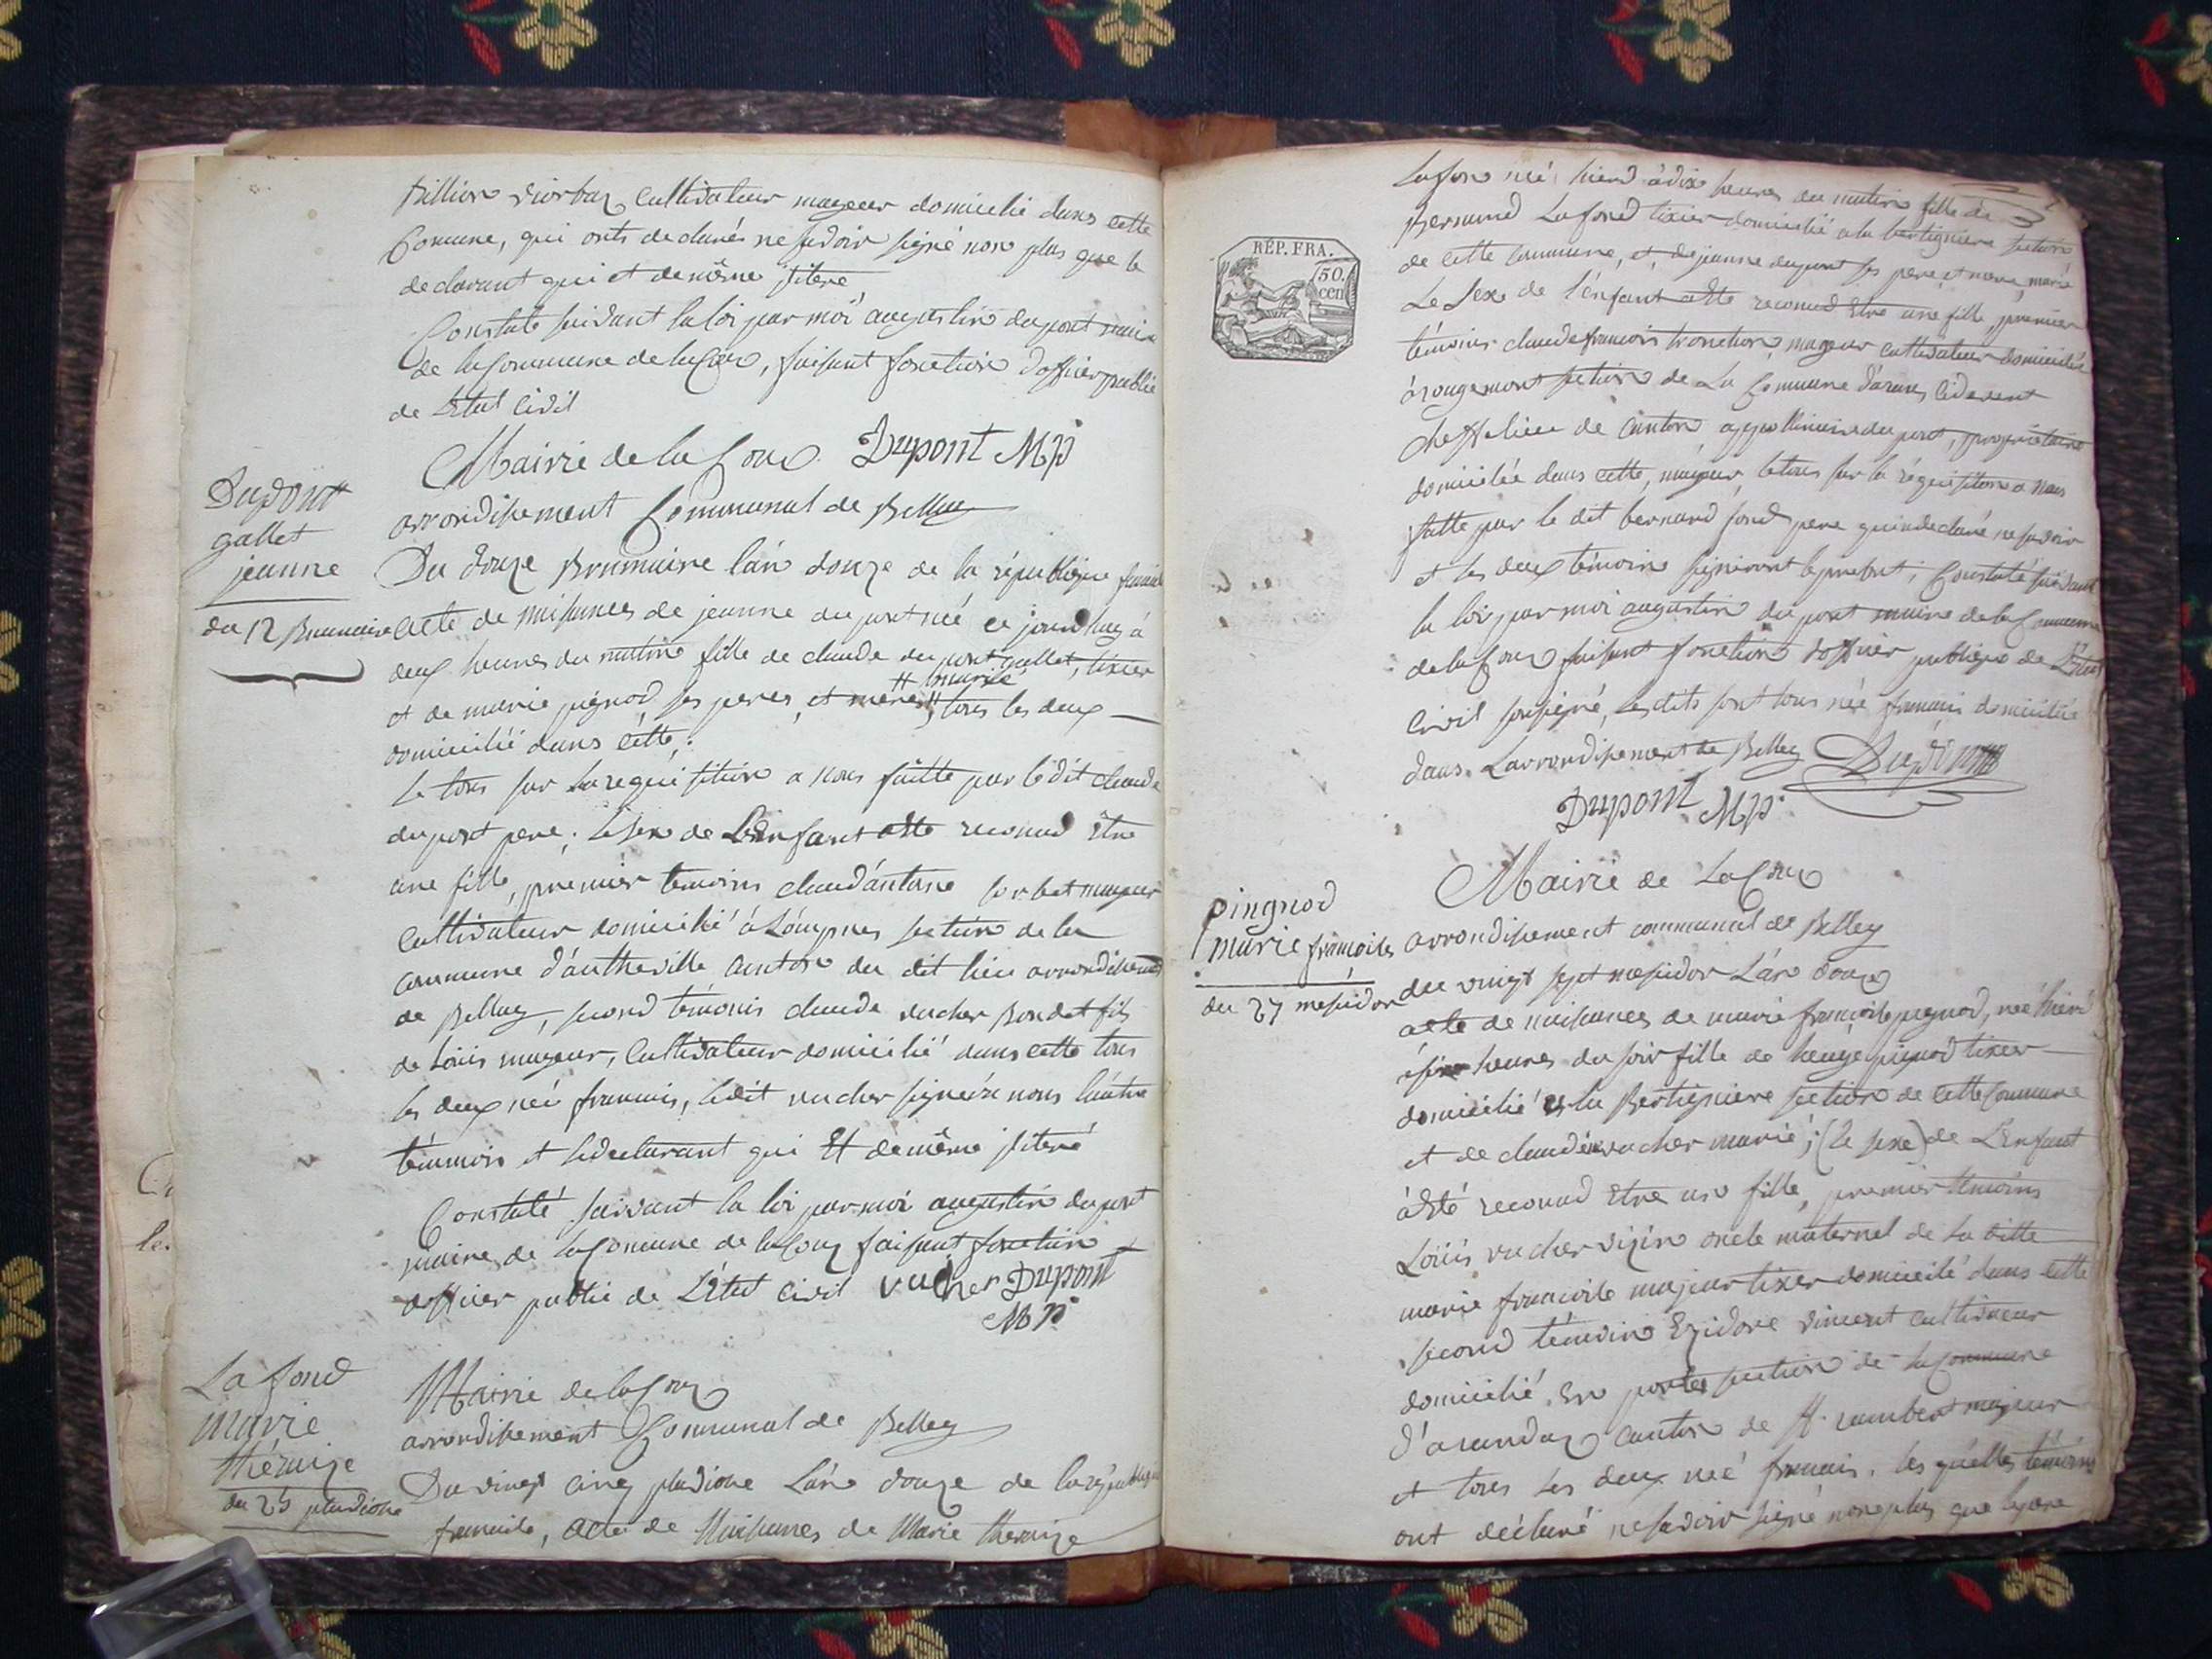 Billion diorbaz Cultivateur mageur domicilié dans cette
Comune, qui onts declarés ne savoir signé non plus que le
declarant qui et de même
Constaté suivant la loi par moi augustin dupont maire
de la Commune de la Cou, faisant fonction d'officier public
de L'état Civil
Mairie de la Coux Dupont M
Dupont
gallet
jeanne
du 12 Brumaire
arrondissement Communal de Belley
Du douze Brumaire l'an douze de la république
acte de naissances de jeanne du pont née ce jourdhuy à
deux heures du matin fille de claude du pont gallet, tixier
et de marie pignod ses peres, et meres, tous les deux
marié
domicilié dans cette,
Le tous sur la requisition a nous faitte par le dit claude
du pont pere; le sexe de L'enfant a été reconud être
une fille, premier temoins claud'antone mageur
Cultivateur domicilié à section de la
commune d'autheville canton du dit lieu arrondissement
de Belley, second témoins claude vucher Bondet fils
de Loüis mageur, Cultivateur domicilié dans cette tous
les deux née francais, ledit vucher signera nous l'autre
témmoin et le declarant qui Et de même
Constaté suivant la loi par moi augustin du pont
maire de la Comune de la Coux faisant fonction
d'officier public de L'état Civil vucher Dupont
M
La fond
marie
théraize
du 25 pludiose
Mairie de la Coux
arrondissement Communal de Belley
Du vingt cinq pludiose L'an douze de la république
francaise, acte de Naissances de Marie theraize
RÉP. FRA.
50.
cen
Lafon née hierd à dix heures du matin fille de
Bernard Lafond tixier domicilié a la bertigniere section
de cette commune, et de jeanne dupont ses pere et mere, marié
Le Sexe de l'enfant a été reconud Etre une fille, premier
témoins claude francois tronchon mageur cultivateur domicilié
à rougemont section de La Commune d'aran, cidevent
cheff lieu de canton, du pont, propriétaire
domiciliée dans cette, mageur, le tous sur la réquisition a nous
faitte par le dit bernard fond pere qui a declaré ne savoir
et les deux témoins signeront le present; Constaté suivant
la loi par moi augustin du pont maire de la Commune
de la Coux faisant fonction d'officier publique de L'état
Civil sousigné, Les dits sont tous née francais domicilié
dans L'arrondissement de Belley Dupont
Dupont M
Mairie de La Coux
pingnod
marie francoise
du 27 mesidor
arrondissement communal de Belley
du vingt sept mesidor L'an douze
acte de naissances de marie francoise pignod, née hierd
heures du soir fille de pignod tixier
domicilié a la Bertigniere section de cette commune
et de claudine vucher marié; (Le sexe) de L'enfant
à été reconud Etre une fille, premier témoins
Loüis vucher vizin oncle maternel de la ditte
marie francoise majeur tixier domicilié dans cette
second témoins Ezidore vincent cultivateur
domicilié En section de la commune
d'arandaz canton de St rambert majeur
et tous les deux née francais. les quelles témoins
ont déclaré ne savoir signé non plus que le pere